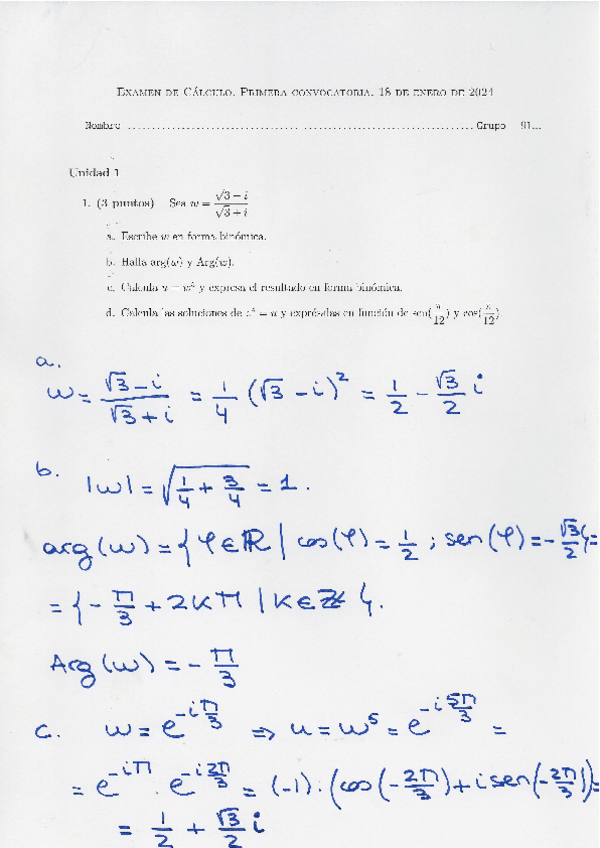 EXAMEN DE CÁLCULO. PRIMERA CONVOCATORIA. 18 DE ENERO DE 2024
Nombre ........................................................................ Grupo 91...
Unidad 1
1. (3 puntos) Sea w = (√3 − i)/(√3 + i)
a. Escribe w en forma binómica.
b. Halla arg(w) y Arg(w).
c. Calcula u = w⁵ y expresa el resultado en forma binómica.
d. Calcula las soluciones de z⁴ = u y exprésalas en función de sen(π/12) y cos(π/12)
a.
w = (√3 − i)/(√3 + i) = 1/4 (√3 − i)² = 1/2 − √3/2 i
b. |w| = √(1/4 + 3/4) = 1.
arg(w) = {φ ∈ ℝ | cos(φ) = 1/2 ; sen(φ) = −√3/2} =
= {−π/3 + 2kπ | k ∈ ℤ}.
Arg(w) = −π/3
c. w = e^(−iπ/3) ⇒ u = w⁵ = e^(−i5π/3) =
= e^(−iπ) · e^(−i2π/3) = (−1) · (cos(−2π/3) + i sen(−2π/3)) =
= 1/2 + √3/2 i